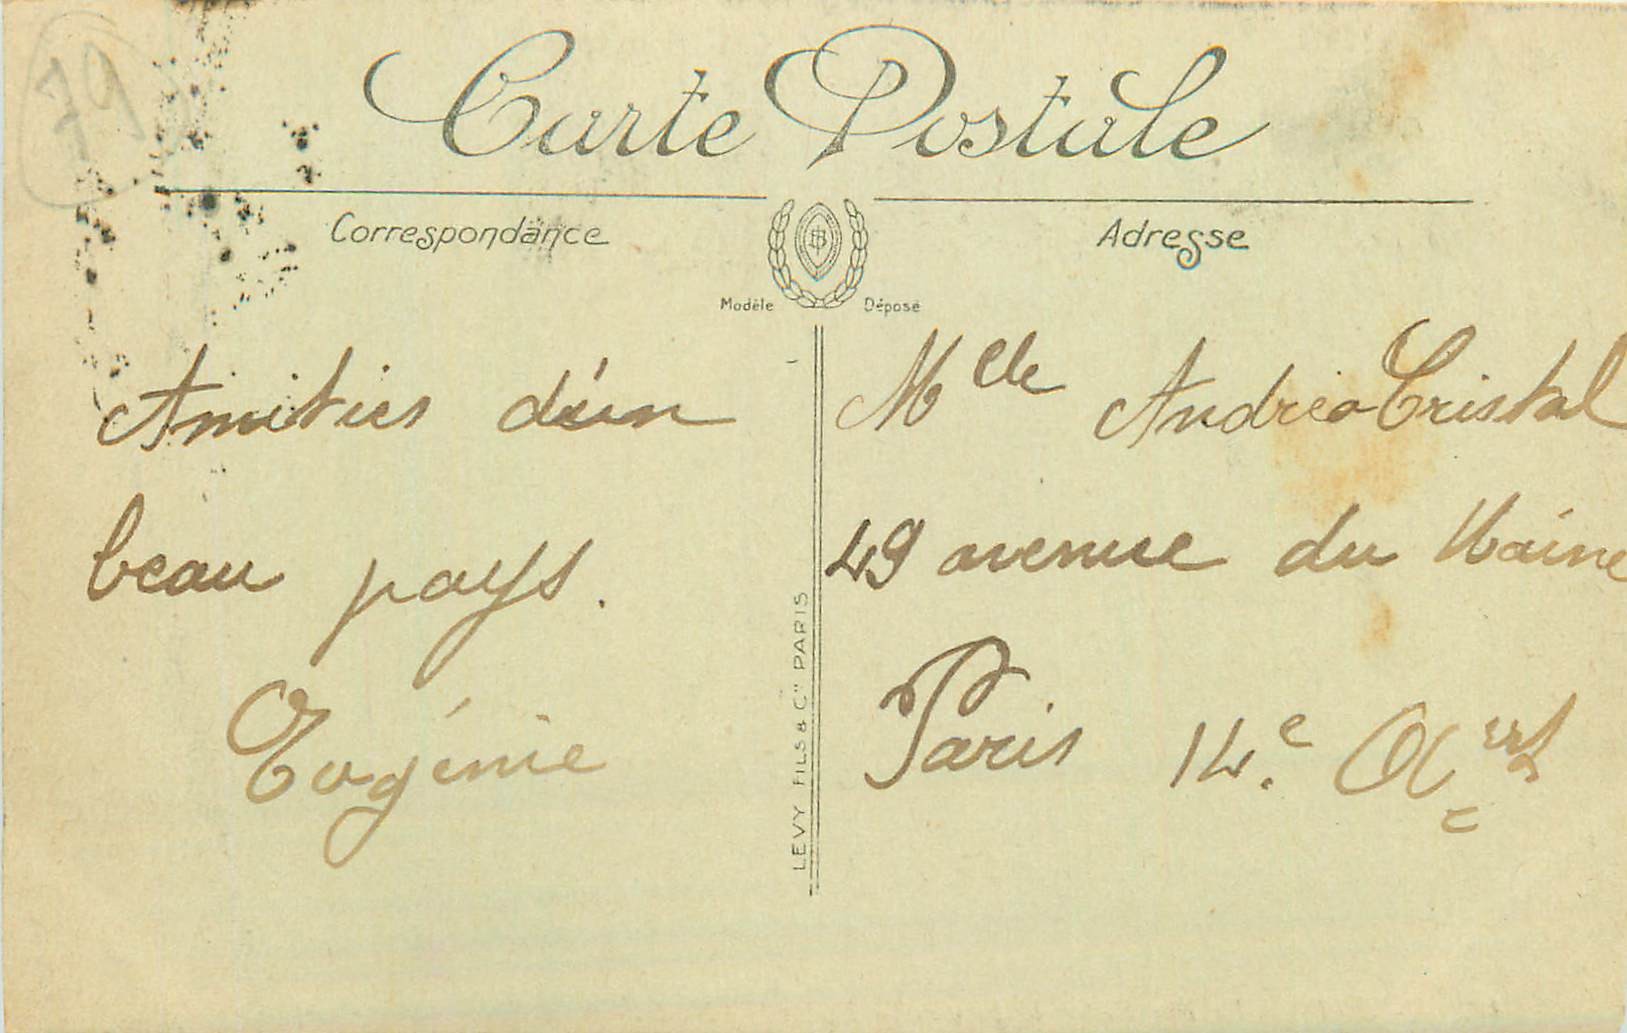 79
Carte Postale
Correspondance
Adresse
BD
Modèle Déposé
Amitiés d'un
beau pays.
Eugénie
LEVY FILS & Cie PARIS
Melle Andréa Cristal
49 avenue du Maine
Paris 14.e